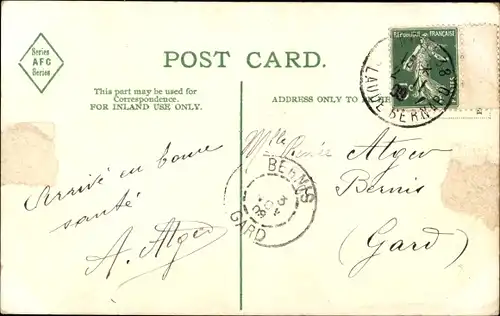 Series
AFC
Series
POST CARD.
This part may be used for
Correspondence.
FOR INLAND USE ONLY.
ADDRESS ONLY TO BE
REPUBLIQUE FRANÇAISE
BERNARD
Arrivé en bonne
santé
A. Alger
BERNIS
GARD
Mlle
Alger
Bernis
(Gard)